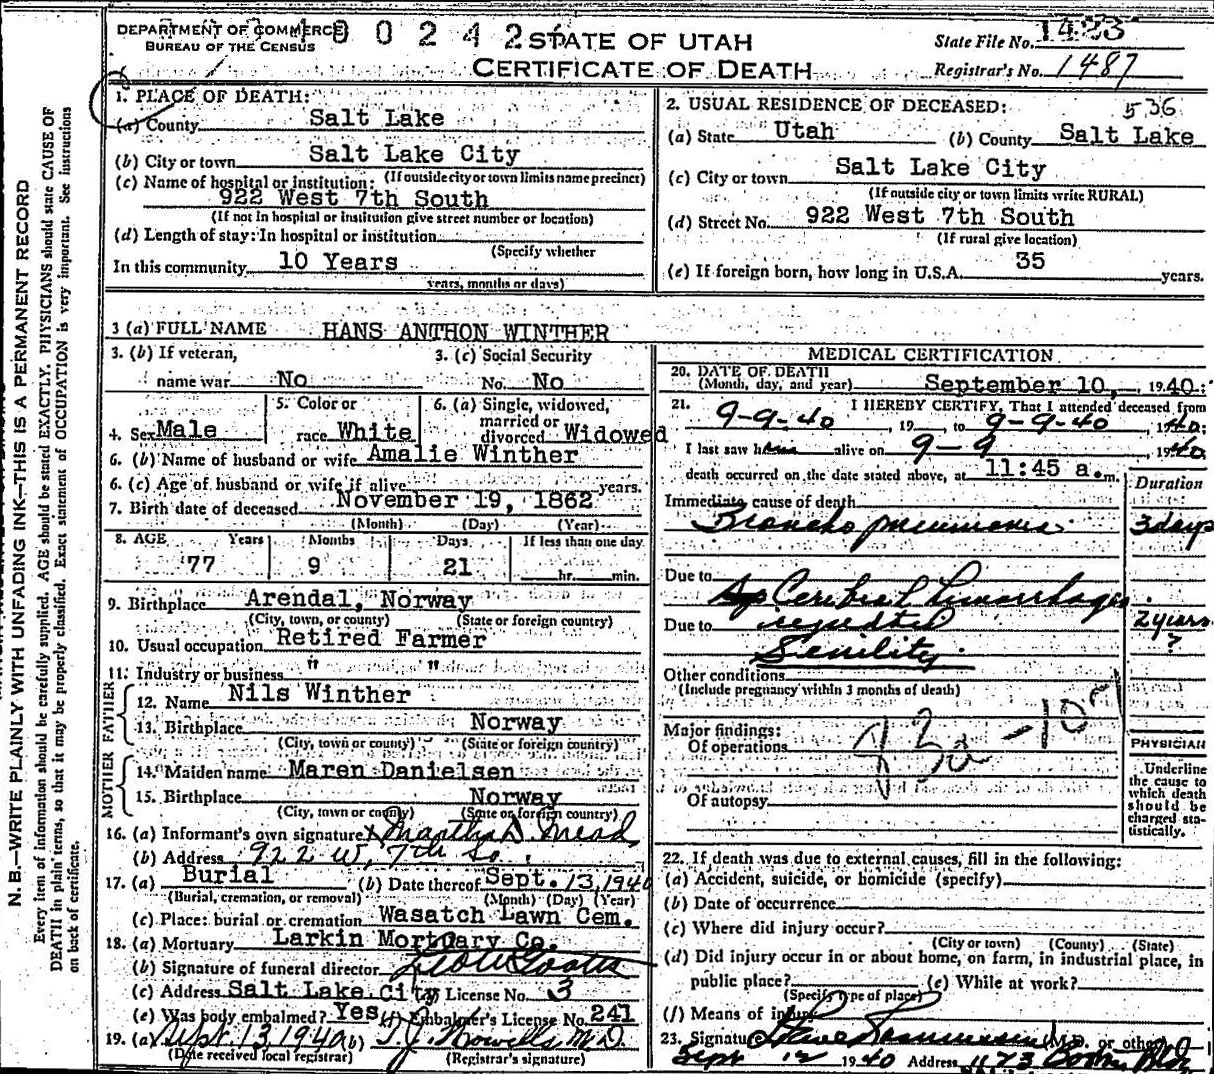 DEPARTMENT OF COMMERCE
BUREAU OF THE CENSUS
0 0 2 4 2
STATE OF UTAH
CERTIFICATE OF DEATH
State File No. 1423
Registrar's No. 1487
N. B.—WRITE PLAINLY WITH UNFADING INK—THIS IS A PERMANENT RECORD
Every item of information should be carefully supplied. AGE should be stated EXACTLY. PHYSICIANS should state CAUSE OF
DEATH in plain terms, so that it may be properly classified. Exact statement of OCCUPATION is very important. See instructions
on back of certificate.
1. PLACE OF DEATH:
(a) County Salt Lake
(b) City or town Salt Lake City
(If outside city or town limits name precinct)
(c) Name of hospital or institution:
922 West 7th South
(If not in hospital or institution give street number or location)
(d) Length of stay: In hospital or institution
(Specify whether
In this community 10 Years
years, months or days)
2. USUAL RESIDENCE OF DECEASED: 536
(a) State Utah (b) County Salt Lake
(c) City or town Salt Lake City
(If outside city or town limits write RURAL)
(d) Street No. 922 West 7th South
(If rural give location)
(e) If foreign born, how long in U.S.A. 35 years.
3 (a) FULL NAME HANS ANTHON WINTHER
3. (b) If veteran, name war No
3. (c) Social Security No. No
4. Sex Male
5. Color or race White
6. (a) Single, widowed, married or divorced Widowed
6. (b) Name of husband or wife Amalie Winther
6. (c) Age of husband or wife if alive years.
7. Birth date of deceased November 19, 1862
(Month) (Day) (Year)
8. AGE Years Months Days If less than one day
77 9 21 hr. min.
9. Birthplace Arendal, Norway
(City, town, or county) (State or foreign country)
10. Usual occupation Retired Farmer
11. Industry or business " "
FATHER
12. Name Nils Winther
13. Birthplace Norway
(City, town or county) (State or foreign country)
MOTHER
14. Maiden name Maren Danielsen
15. Birthplace Norway
(City, town or county) (State or foreign country)
16. (a) Informant's own signature x Martha D. Mead
(b) Address 922 W. 7th So.
17. (a) Burial (b) Date thereof Sept. 13, 1940
(Burial, cremation, or removal) (Month) (Day) (Year)
(c) Place: burial or cremation Wasatch Lawn Cem.
18. (a) Mortuary Larkin Mortuary Co.
(b) Signature of funeral director
(c) Address Salt Lake City License No. 3
(e) Was body embalmed? Yes Embalmer's License No. 241
19. (a) Sept. 13, 1940 (b) T. J. Howells M.D.
(Date received local registrar) (Registrar's signature)
MEDICAL CERTIFICATION
20. DATE OF DEATH
(Month, day, and year) September 10, 1940
21. I HEREBY CERTIFY, That I attended deceased from
9-9-40, 19 to 9-9-40, 1940;
I last saw him alive on 9-9, 1940
death occurred on the date stated above, at 11:45 a. m.
Duration
Immediate cause of death
Broncho pneumonia 3 days
Due to Cerebral hemorrhages
Due to repeated 2 years
Senility ?
Other conditions
(Include pregnancy within 3 months of death)
Major findings:
Of operations
Of autopsy
PHYSICIAN
Underline
the cause to
which death
should be
charged sta-
tistically.
22. If death was due to external causes, fill in the following:
(a) Accident, suicide, or homicide (specify)
(b) Date of occurrence
(c) Where did injury occur?
(City or town) (County) (State)
(d) Did injury occur in or about home, on farm, in industrial place, in
public place? (e) While at work?
(Specify type of place)
(f) Means of injury
23. Signature Rasmussen (M.D. or other)
Sept 12 1940 Address 1173